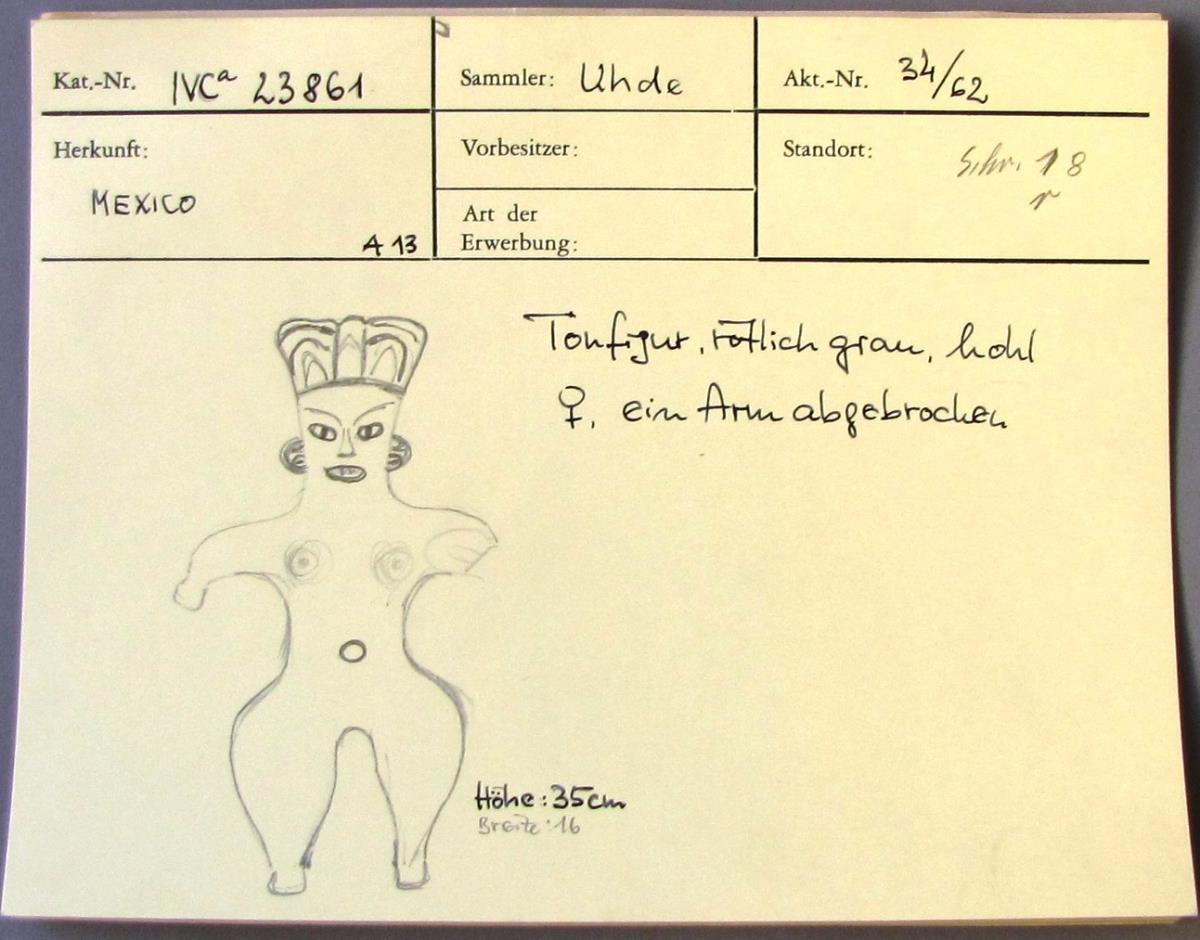 Kat.-Nr. IVCª 23861
Sammler: Uhde
Akt.-Nr. 34/62
Herkunft:
MEXICO
A 13
Vorbesitzer:
Art der
Erwerbung:
Standort: Schr. 18
r
Tonfigur, rötlich grau, hohl
♀, ein Arm abgebrochen
Höhe: 35cm
Breite: 16